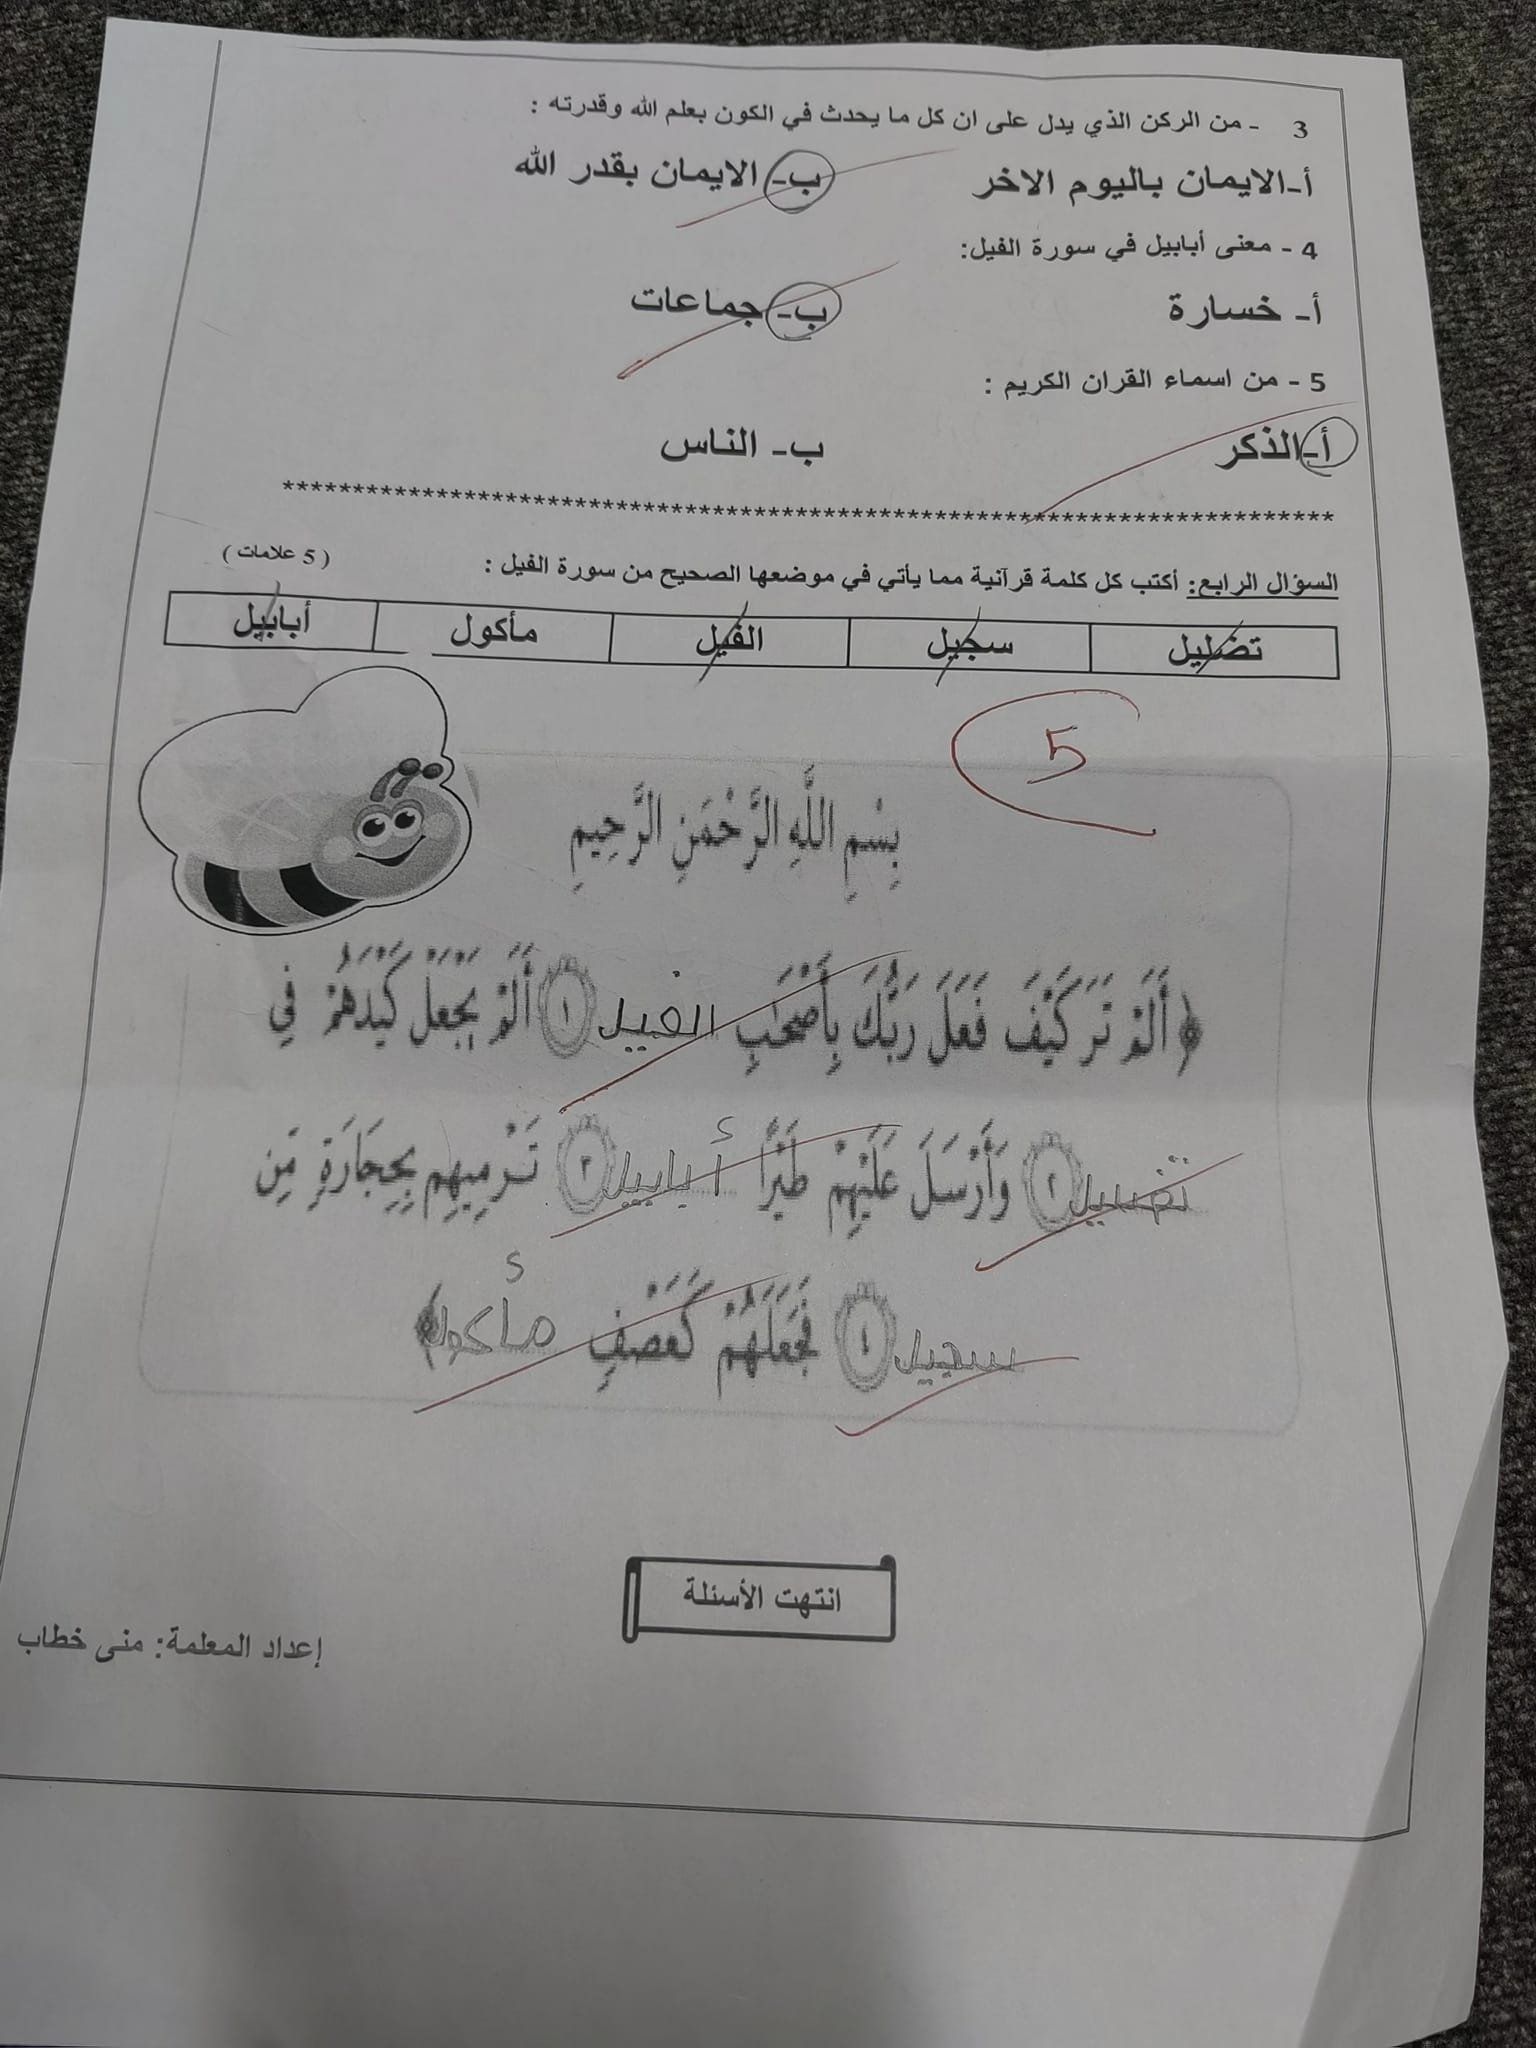 3 - من الركن الذي يدل على ان كل ما يحدث في الكون بعلم الله وقدرته :
أ-الايمان باليوم الاخر ب- الايمان بقدر الله
4 - معنى أبابيل في سورة الفيل:
أ- خسارة ب- جماعات
5 - من اسماء القران الكريم :
أ-الذكر ب- الناس
********************************************************************************
السؤال الرابع: أكتب كل كلمة قرآنية مما يأتي في موضعها الصحيح من سورة الفيل : ( 5 علامات )
تضليل سجيل الفيل مأكول أبابيل
5
بِسْمِ اللَّهِ الرَّحْمَنِ الرَّحِيمِ
﴿ أَلَمْ تَرَ كَيْفَ فَعَلَ رَبُّكَ بِأَصْحَابِ الفيل ١ أَلَمْ يَجْعَلْ كَيْدَهُمْ فِي
تضليل ٢ وَأَرْسَلَ عَلَيْهِمْ طَيْرًا أبابيل ٣ تَرْمِيهِم بِحِجَارَةٍ مِّن
سجيل ٤ فَجَعَلَهُمْ كَعَصْفٍ مأكول ﴾
انتهت الأسئلة
إعداد المعلمة: منى خطاب